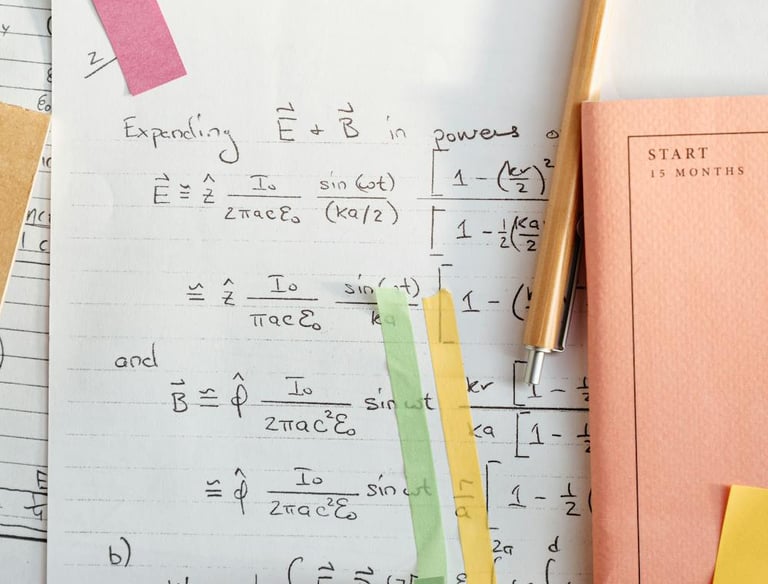 2
Expanding E⃗ + B⃗ in powers o
E⃗ ≅ ẑ I₀/(2πacε₀) sin(ωt)/(ka/2) [1 - (kr/2)² / [1 - ½(ka/2
≅ ẑ I₀/(πacε₀) sin(ωt)/ka [1 - (
and
B⃗ ≅ φ̂ I₀/(2πac²ε₀) sin ωt kr/ka [1 - ½ / [1 - ½
≅ φ̂ I₀/(2πac²ε₀) sin ωt r/a [1 - ½(
b)
2a d
START
15 MONTHS